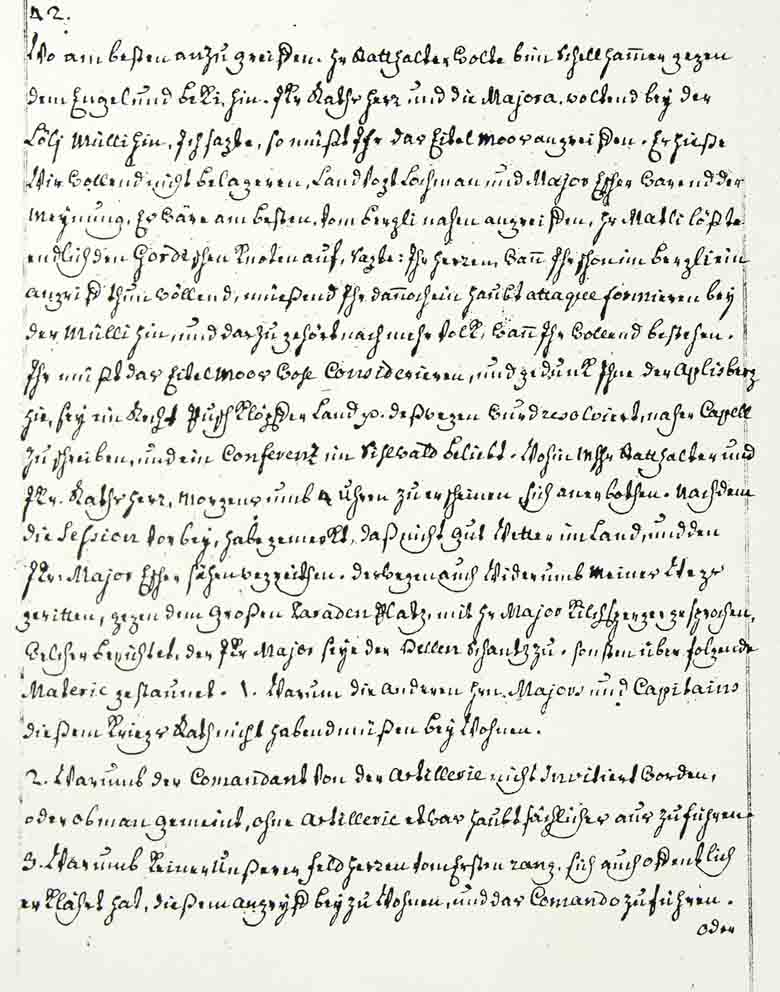 42.
Wo am besten anzugreiffen. Hr Statthalter Wolte bim Schellhamer gegen
dem Engel und beki hin. Jkr Rathsherr und die Majora, woltend bey der
Löli Mülli hin, Ich sagte, so müßt Ihr das Eitel Moos angreiffen. Er hieße
Wir Wollend nicht belageren, Landvogt Lochman und Major Escher Warend der
Meynung, Es Wäre am besten, vom bergli nahen angreiffen, Hr Matli lößte
endlich den Gordischen Knoten auf, sagte: Ihr Herren, Wan Ihr schon im bergli ein
angriff thun Wöllend, müeßend Ihr dannoch ein haubt attaque formieren bey
der Mülli hin, und darzu gehört nach mehr Volk, Wan Ihr Wollend bestehen.
Ihr müßt das Eitel Moos Wohl Considerieren, und gedunk Ihne der Aplisberg
hie, sey ein Recht der Land deßwegen Wurd resolviert, naher Capell
zu schreiben, und ein Conferenz im Sihlwald beliebt. Wohin MHr Statthalter und
Jkr. Rathsherr, Morgens umb 4 Uhren zu erscheinen sich anerbothen. Nachdem
die Session Vorbey, habe gemerkt, daß nicht gut Wetter im Land, und den
Jkr. Major Escher sähen wegreithen. deswegen auch Widerumb meines Wegs
geritten, gegen dem Großen Paraden Platz, mit Hr Major Kilchsperger gesprochen,
Welcher berichtet, der Jkr Major seye der Bellen Schantz zu. sonsten über folgende
Materie gestaunet. 1. Warum die anderen Hrn. Majors und Capitains
dießem Kriegs Rath nicht habend müßen bey Wohnen.
2. Warumb der Comandant Von der Artillerie nicht Invitiert Worden,
oder ob man gemeint, ohne Artillerie etwas haubtsächliches auszuführen.
3. Warumb Keiner Unßerer Feld Herren Vom Ersten rang, sich auch offentlich
erklährt hat, dießem angryff bey zu Wohnen, und das Comando zuführen.
oder